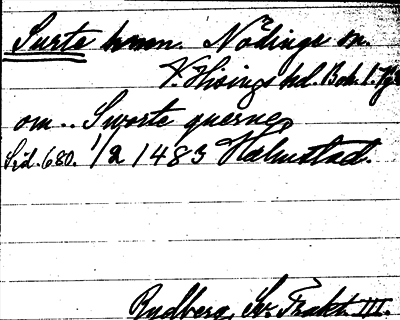 Surte kvarn. Nödinge sn.
V. Hisings hd. Boh. l. Fjs
om .. Sworte quernes
Sid. 680. 1/2 1483 Halmstad.
Rydberg, Sv. Trakt. III.